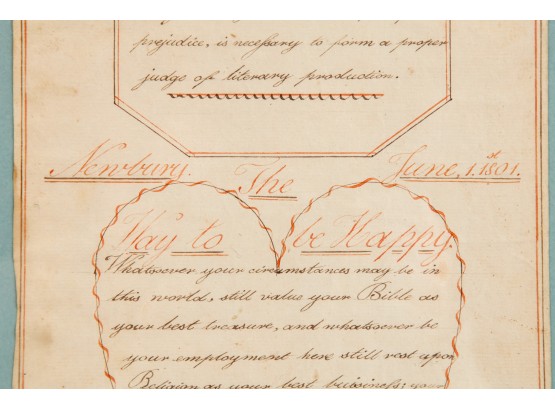 prejudice, is necessary to form a proper
judge of literary production.
Newbury. The June, 1.st 1801.
Way to be Happy.
Whatsoever your circumstances may be in
this world, still value your Bible as
your best treasure, and whatsoever be
your employment here still rest upon
Religion as your best buisiness; your